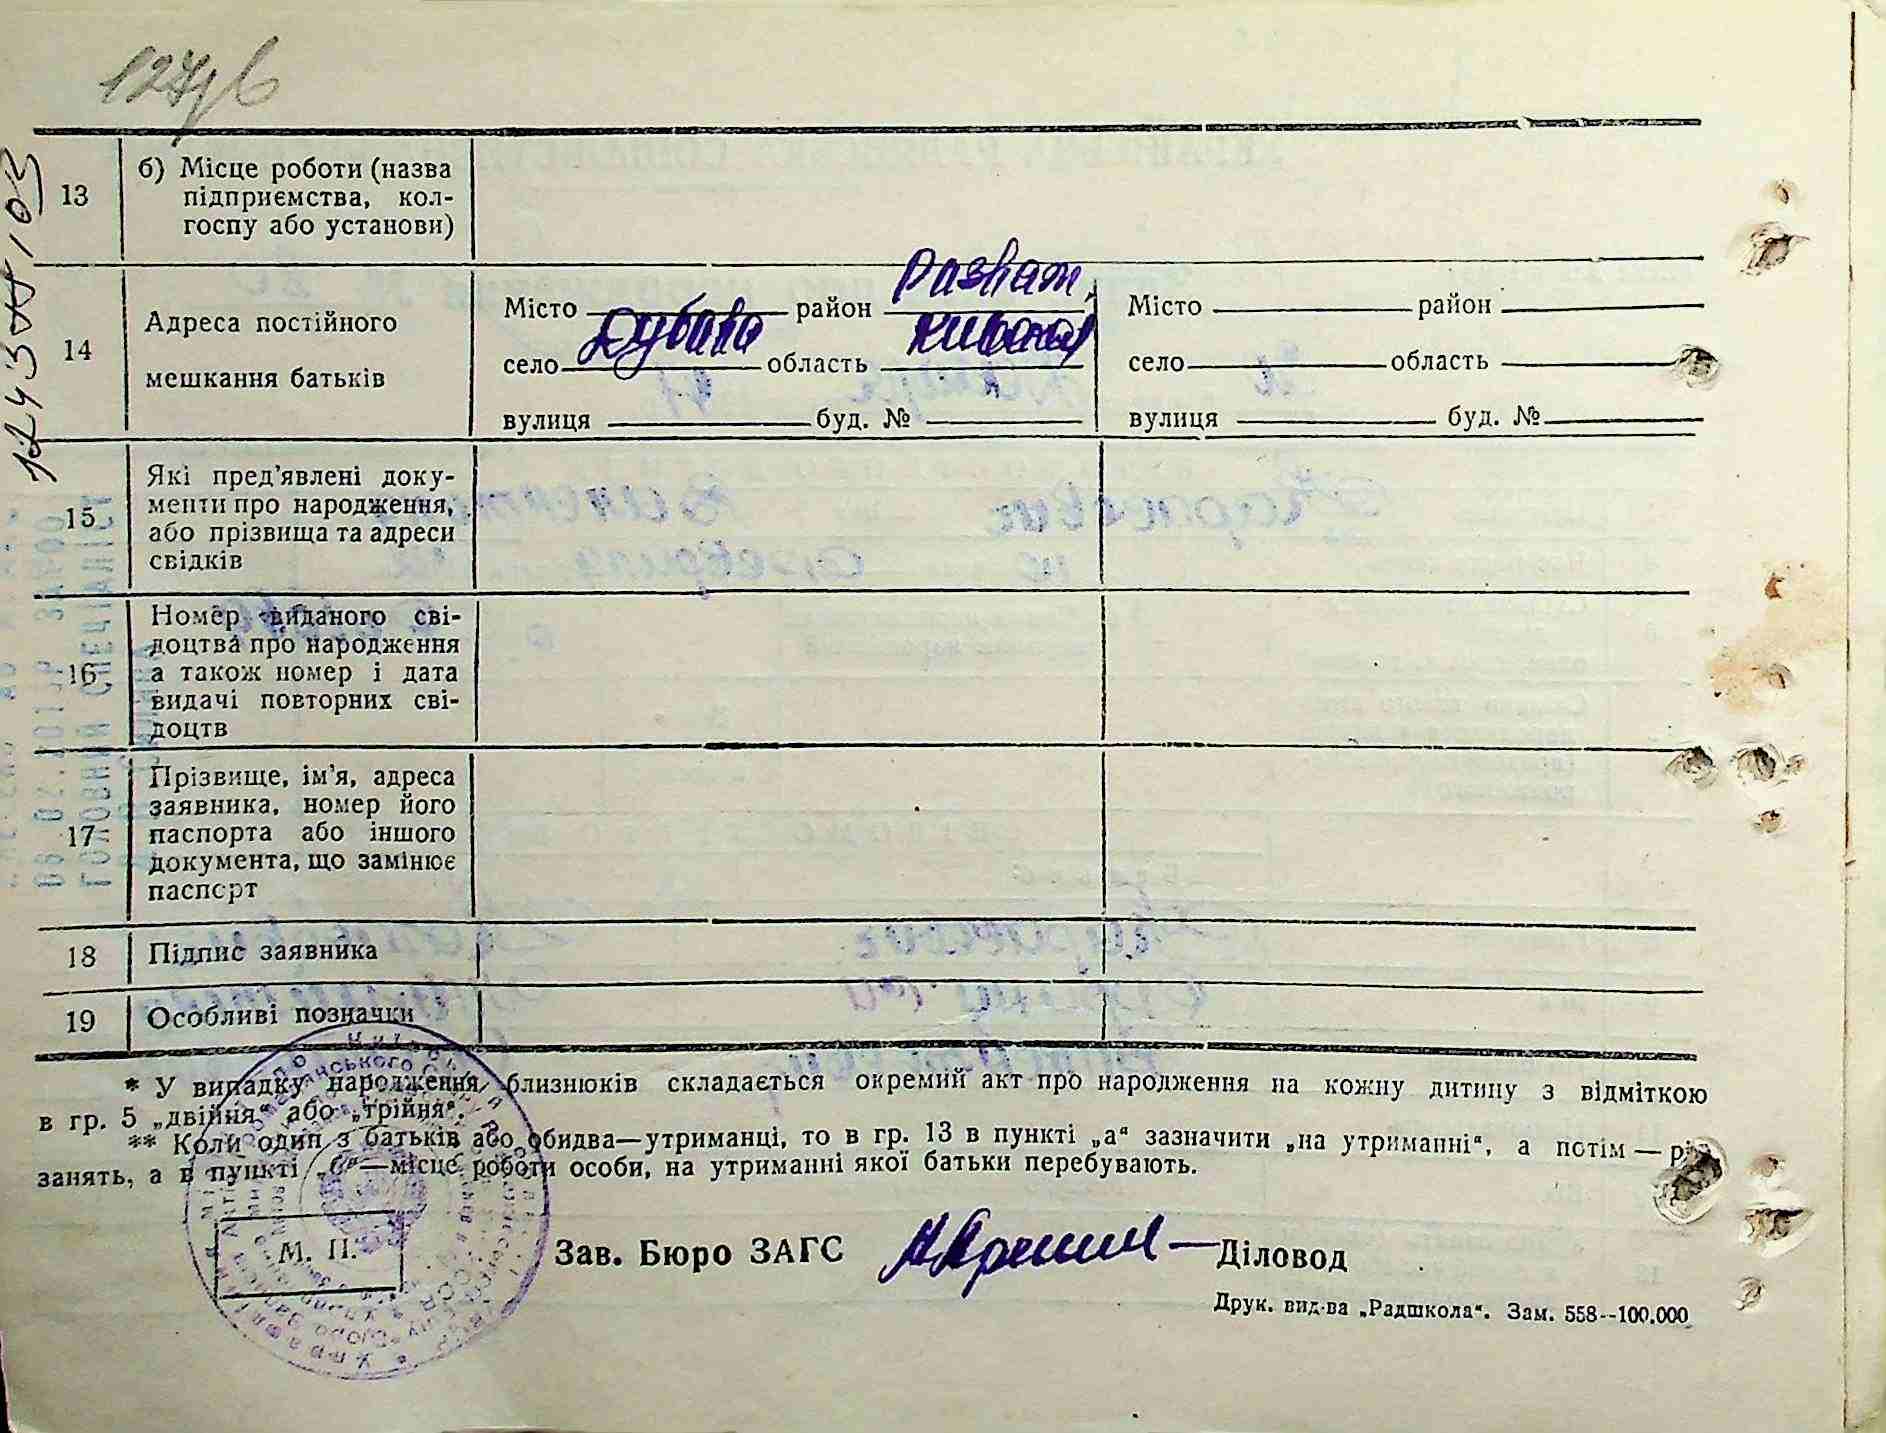 13
б) Місце роботи (назва
підприємства, кол-
госпу або установи)
14
Адреса постійного
мешкання батьків
Місто район
село Дубова область
вулиця буд. №
Місто район
село область
вулиця буд. №
15
Які пред’явлені доку-
менти про народження,
або прізвища та адреси
свідків
16
Номер виданого сві-
доцтва про народження
а також номер і дата
видачі повторних сві-
доцтв
17
Прізвище, ім’я, адреса
заявника, номер його
паспорта або іншого
документа, що замінює
паспорт
18
Підпис заявника
19
Особливі позначки
* У випадку народження близнюків складається окремий акт про народження на кожну дитину з відміткою
в гр. 5 „двійня“ або „трійня“.
** Коли один з батьків або обидва—утриманці, то в гр. 13 в пункті „а“ зазначити „на утриманні“, а потім — рід
занять, а в пункті „б“—місце роботи особи, на утриманні якої батьки перебувають.
М. П.
Зав. Бюро ЗАГС
Діловод
Друк. вид-ва „Радшкола“. Зам. 558--100.000